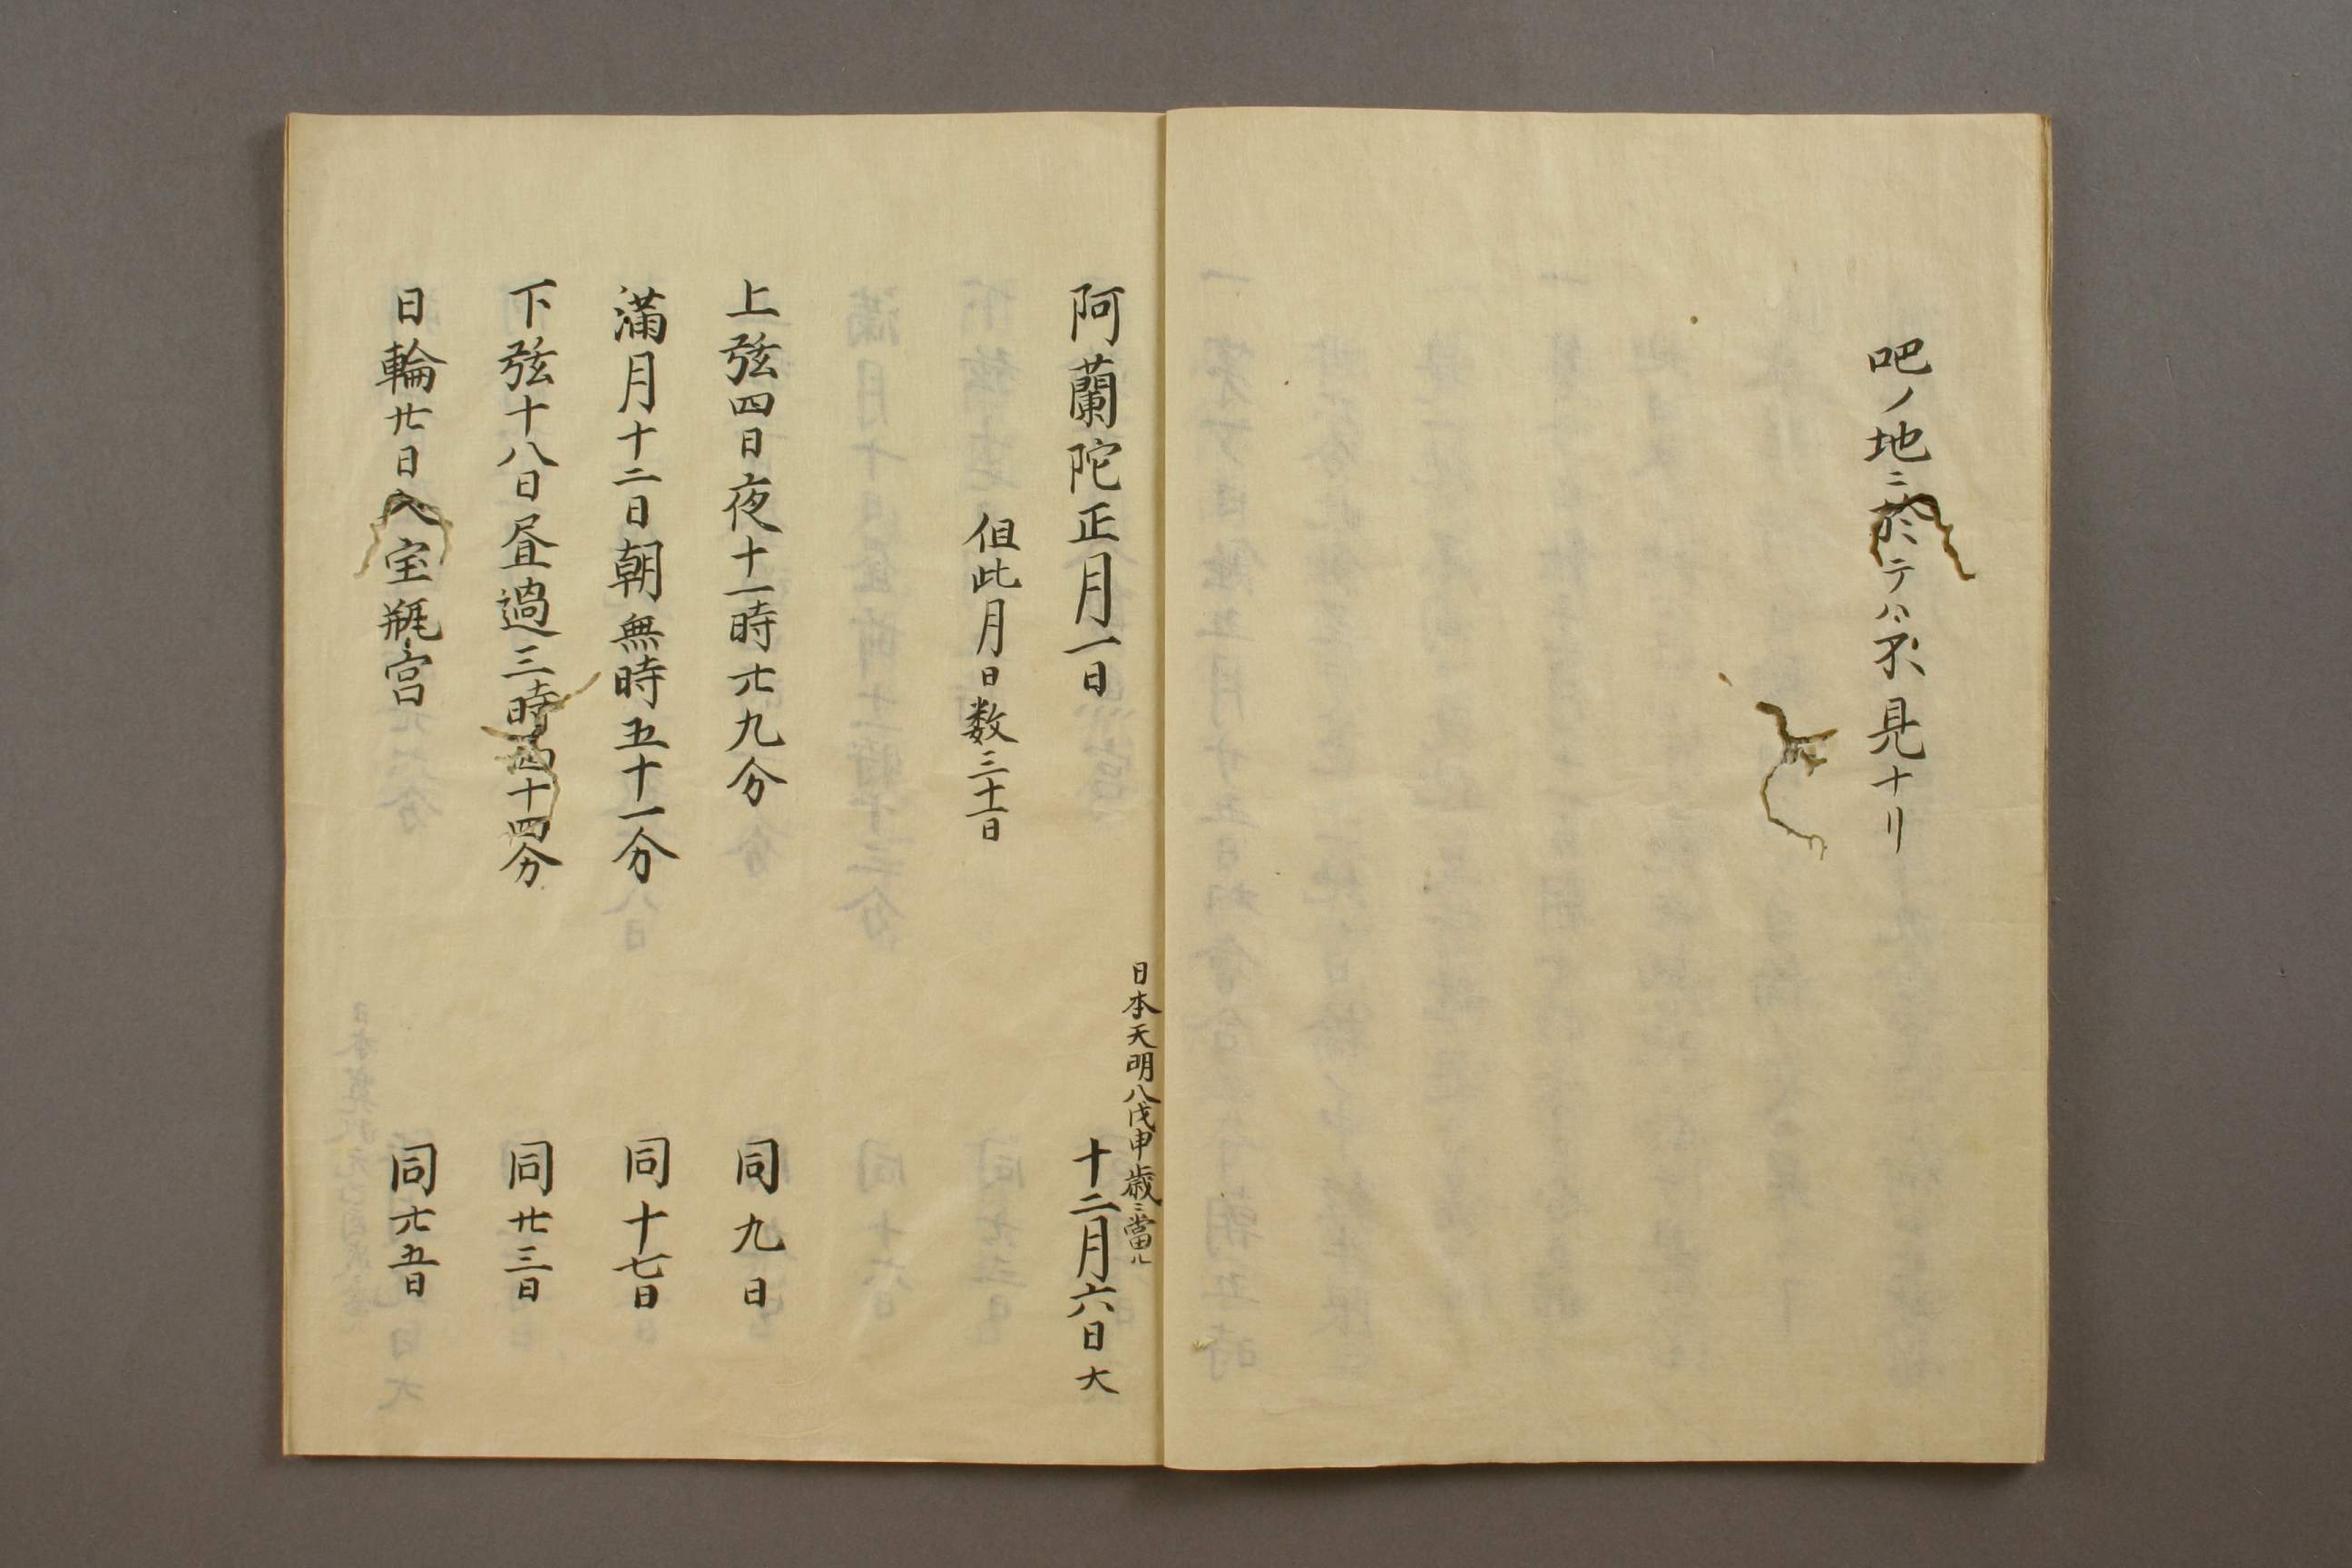 吧ノ地ニ於テハ不見ナリ
阿蘭陀正月一日
日本天明八戊申歳ニ當ル
十二月六日大
但此月日数三十一日
上弦四日夜十一時廿九分
同九日
満月十二日朝無時五十一分
同十七日
下弦十八日昼過三時四十四分
同廿三日
日輪廿日入宝瓶宮
同廿五日